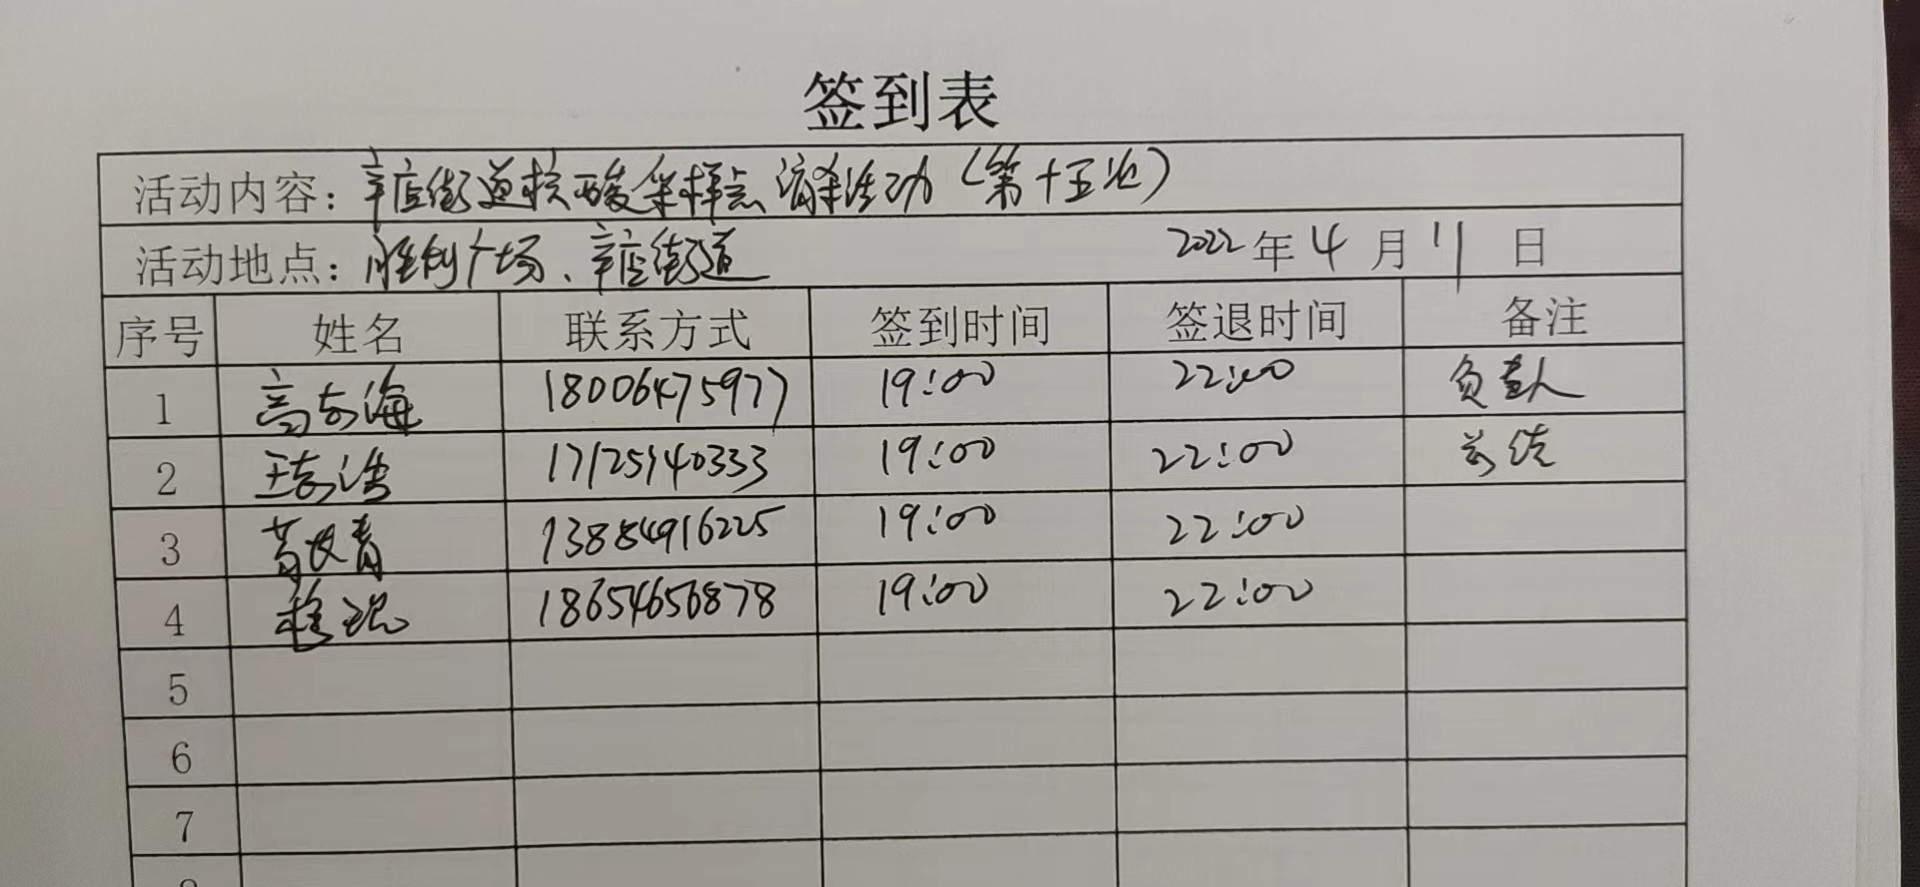 签到表
活动内容：辛店街道核酸采样点消杀活动（第十五次）
活动地点：胜利广场、辛店街道 2022年4月11日
序号 姓名 联系方式 签到时间 签退时间 备注
1 高东海 18006475977 19:00 22:00 负责人
2 17125140333 19:00 22:00
3 13884916225 19:00 22:00
4 18654656878 19:00 22:00
5
6
7